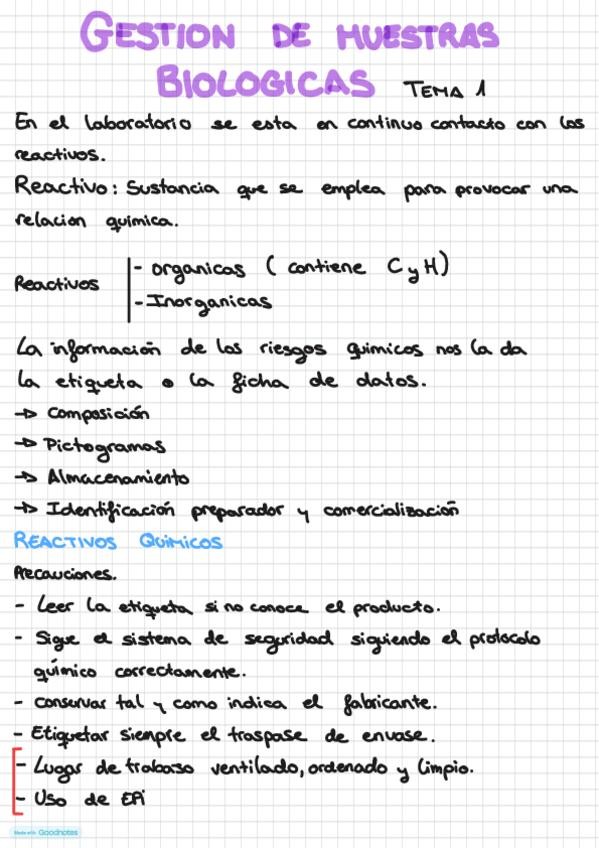 GESTION DE MUESTRAS
BIOLOGICAS TEMA 1
En el laboratorio se esta en continuo contacto con los
reactivos.
Reactivo: Sustancia que se emplea para provocar una
relacion quimica.
Reactivos
- organicas ( contiene C y H)
- Inorganicas
La información de los riesgos quimicos nos la da
la etiqueta o la ficha de datos.
→ Composición
→ Pictogramas
→ Almacenamiento
→ Identificación preparador y comercialización
REACTIVOS QUIMICOS
Precauciones.
- Leer la etiqueta si no conoce el producto.
- Sigue el sistema de seguridad siguiendo el protocolo
químico correctamente.
- conservar tal y como indica el fabricante.
- Etiquetar siempre el traspase de envase.
- Lugar de trabaso ventilado, ordenado y limpio.
- Uso de EPi
Made with Goodnotes